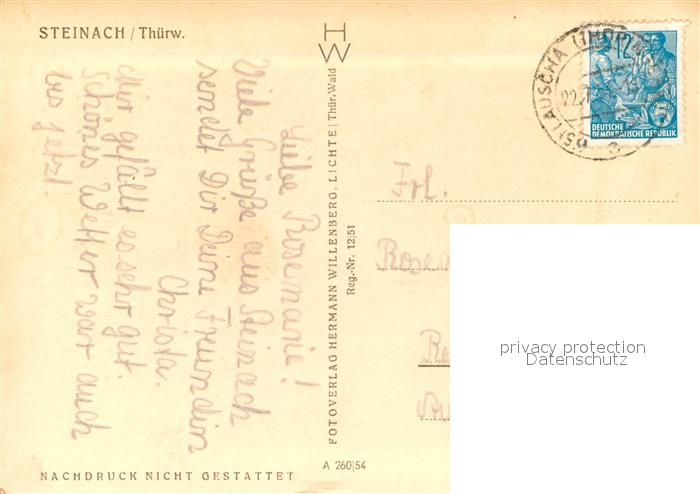 STEINACH / Thürw.
Liebe Rosemarie!
Viele Grüße aus Steinach
sendet Dir Deine Freundin
Christa.
Mir gefällt es sehr gut.
Schönes Wetter war auch
bis jetzt.
NACHDRUCK NICHT GESTATTET
H
W
FOTOVERLAG HERMANN WILLENBERG, LICHTE / Thür. Wald
Reg.-Nr. 12|51
A 260|54
LAUSCHA
22.
12
DEUTSCHE
DEMOKRATISCHE REPUBLIK
Frl.
Rosem
privacy protection
Datenschutz